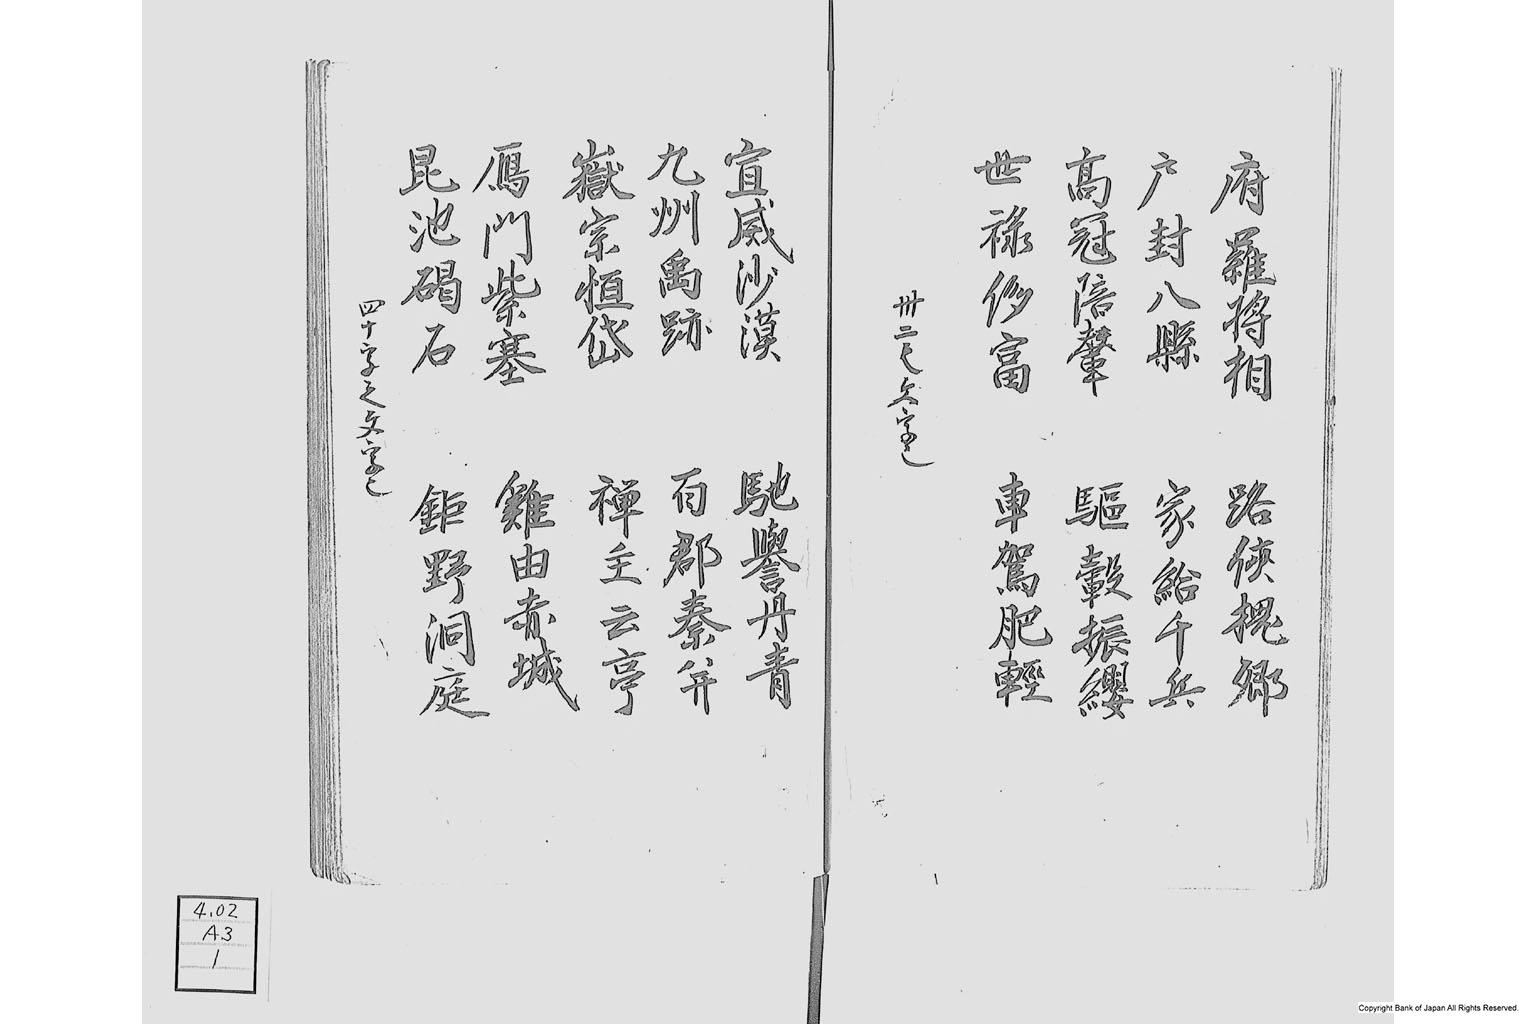 府羅将相　路俠槐郷
户封八縣　家給千兵
高冠陪輦　驅轂振纓
世禄侈富　車駕肥輕
卅二之文字也
宣威沙漠　馳譽丹青
九州禹跡　百郡秦并
嶽宗恒岱　禅主云亭
鴈門紫塞　雞田赤城
昆池碣石　鉅野洞庭
四十字之文字也
4.02
A3
1
Copyright Bank of Japan All Rights Reserved.